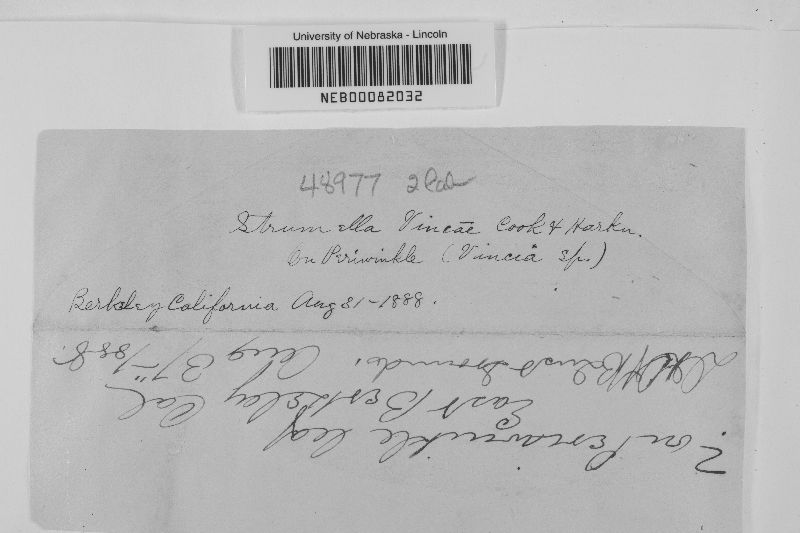 University of Nebraska - Lincoln
NEB00082032
48977 2 Cal
Strumella Vincae Cook & Harkn.
On Periwinkle (Vincia sp.)
Berkeley California Aug 31-1888.
? on Periwinkle leaf
East Berkeley Cal
Grounds. Aug 31st 1888.